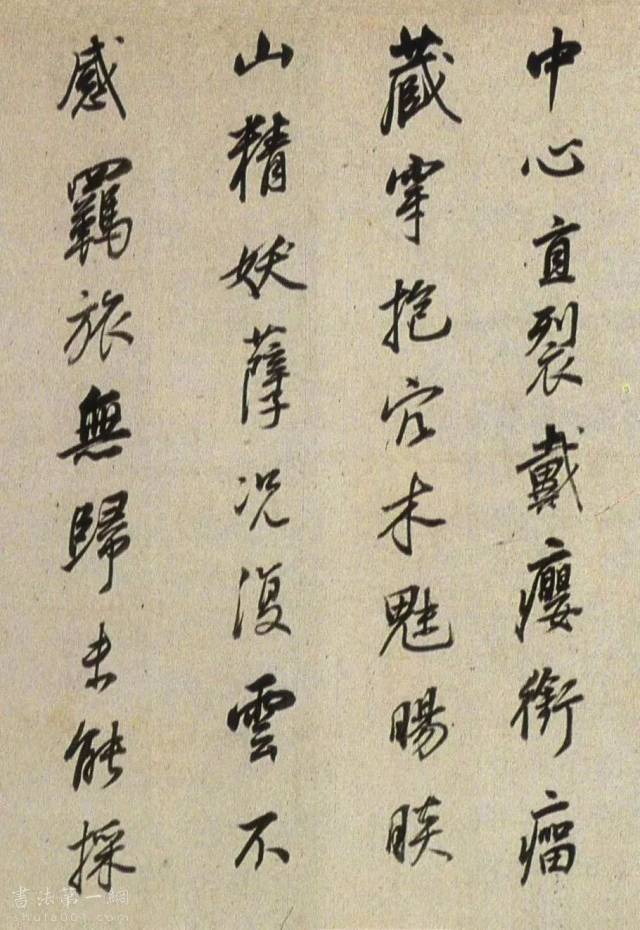 中心直裂戴癭銜瘤
藏穿抱穴木魅暘睒
山精妖孽况復雲不
感羈旅無歸未能採
書法第一網
shufa001.com